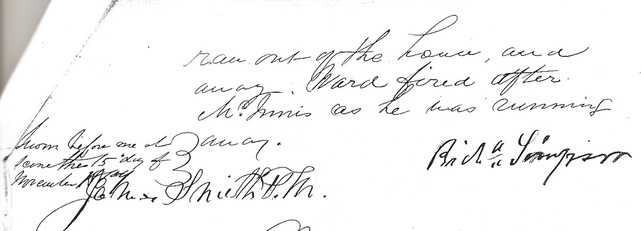 ran out of the house, and
away. Ward fired after
McInnis as he was running
away.
Richd Simpson
Sworn before me at
Scone this 15 day of
November
James Smith P.M.